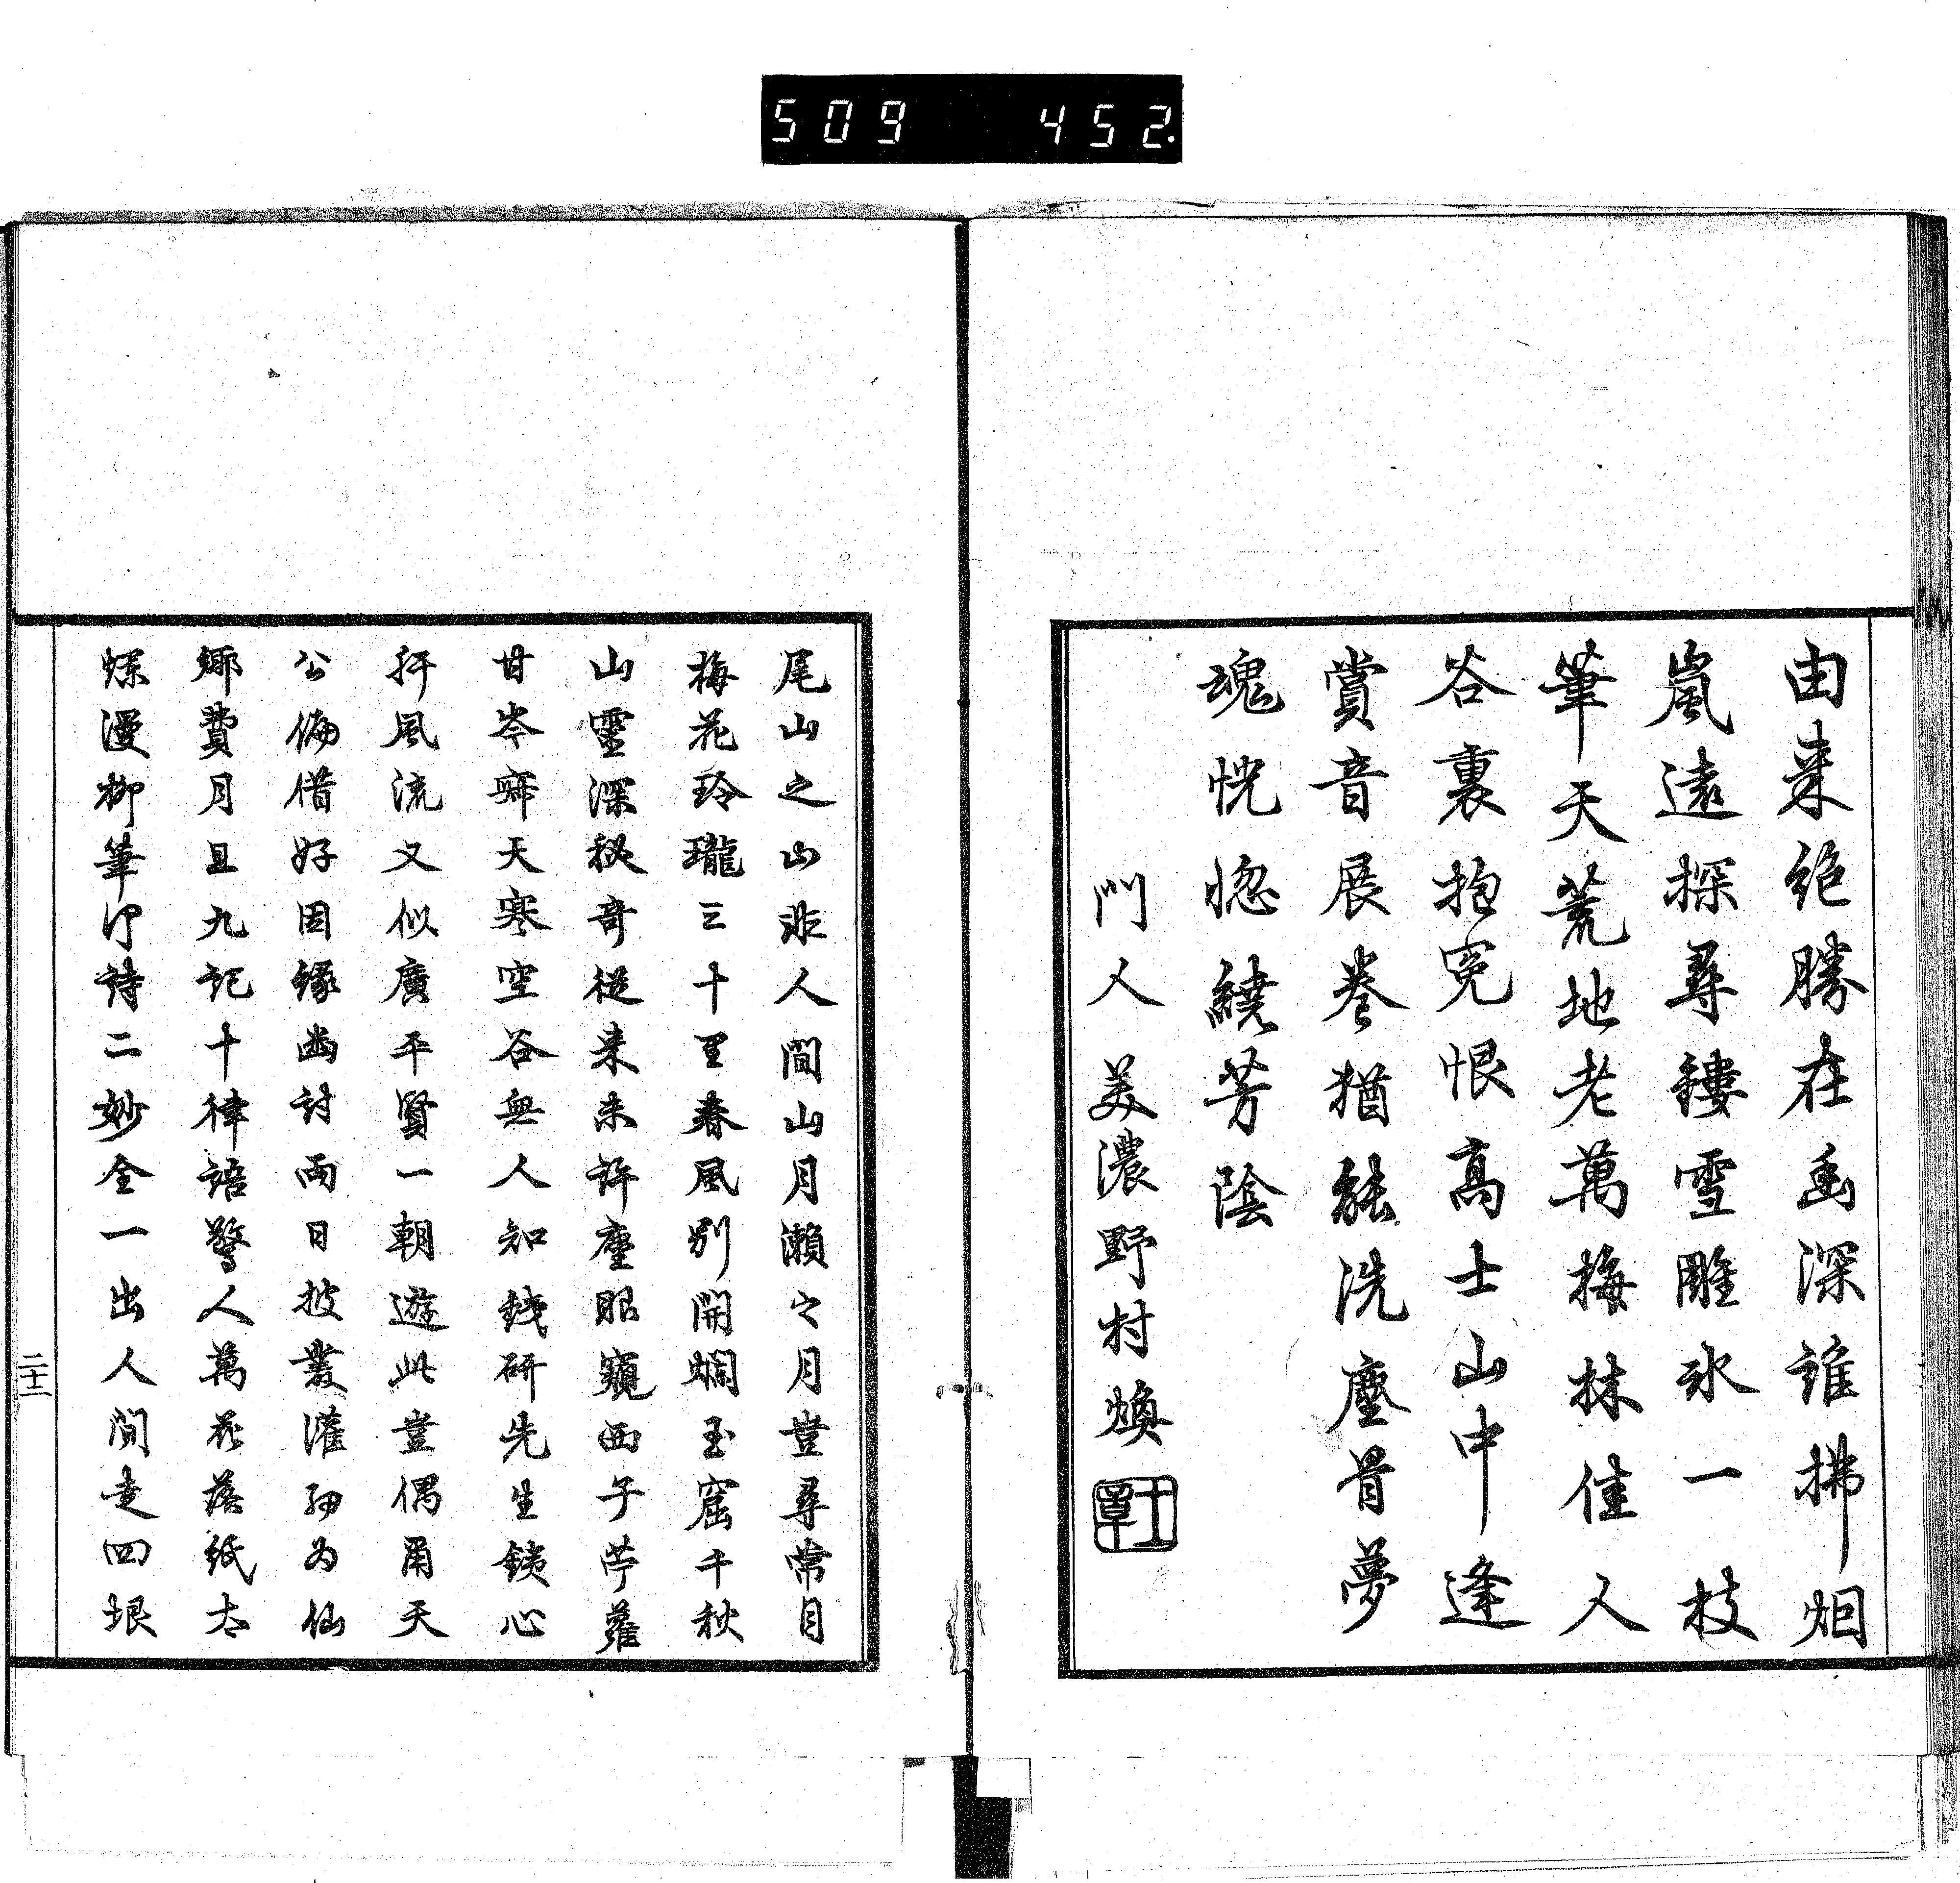 509 452.
由来絶勝在幽深誰拂烟
嵐遠探尋鏤雪雕氷一枝
筆天荒地老萬梅林佳人
谷裏抱冤恨高士山中逢
賞音展巻猶能洗塵骨夢
魂恍惚繞芳陰
門人美濃野村煥
士章
尾山之山非人間山月瀬之月豈尋常月
梅花玲瓏三十里春風別開爛玉窟千秋
山靈深秘奇從来未許塵眼窺西子苧蘿
甘岑寂天寒空谷無人知錢研先生鉄心
肝風流又似廣平賢一朝遊此豈偶爾天
公偏借好因縁幽討両日披叢灌細為仙
郷費月旦九記十律語驚人萬花落紙太
爛漫柳筆
詩二妙全一出人間走四垠
二十二